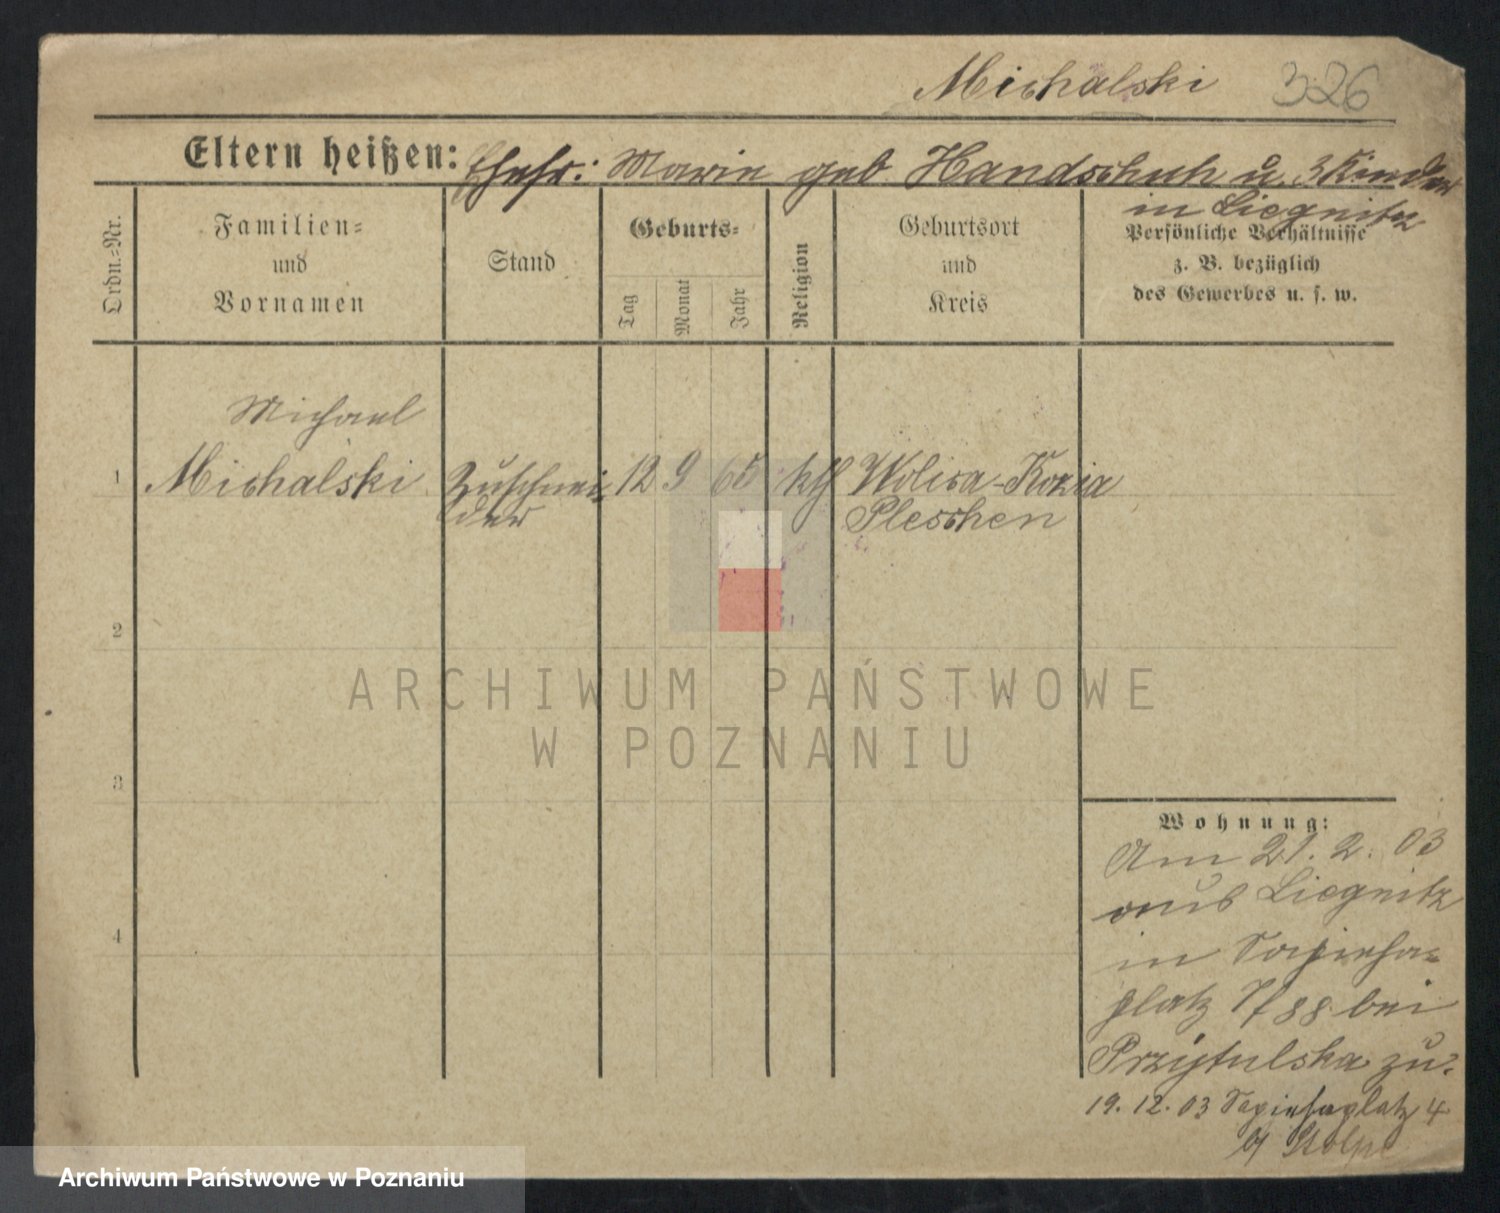 Michalski 326
Eltern heißen: Ehefr: Marie geb Handschuh u. 3 Kinder
in Liegnitz
Ordn.=Nr.
Familien=
und
Vornamen
Stand
Geburts=
Tag
Monat
Jahr
Religion
Geburtsort
und
Kreis
Persönliche Verhältnisse
z. B. bezüglich
des Gewerbes u. s. w.
Michael
1 Michalski Zuschnei 12 9 65 kth Wolica-Kozia
der Pleschen
2
ARCHIWUM PAŃSTWOWE
W POZNANIU
3
Wohnung:
Am 21. 2. 03
aus Liegnitz
4
in Sapieha=
platz bei
Przytulska zu.
19. 12. 03 Sapiehaplatz 4
b/ Stolpe
Archiwum Państwowe w Poznaniu